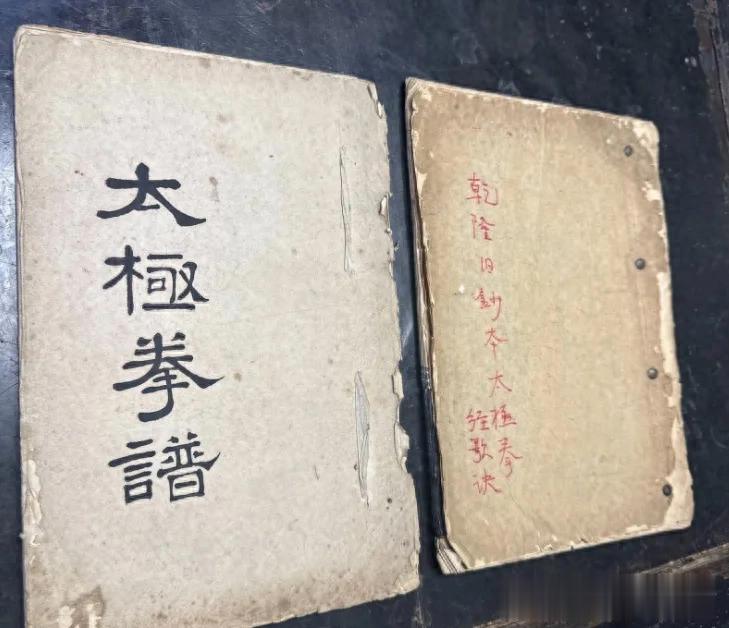 太極拳譜
乾隆旧鈔本太極拳
经歌诀